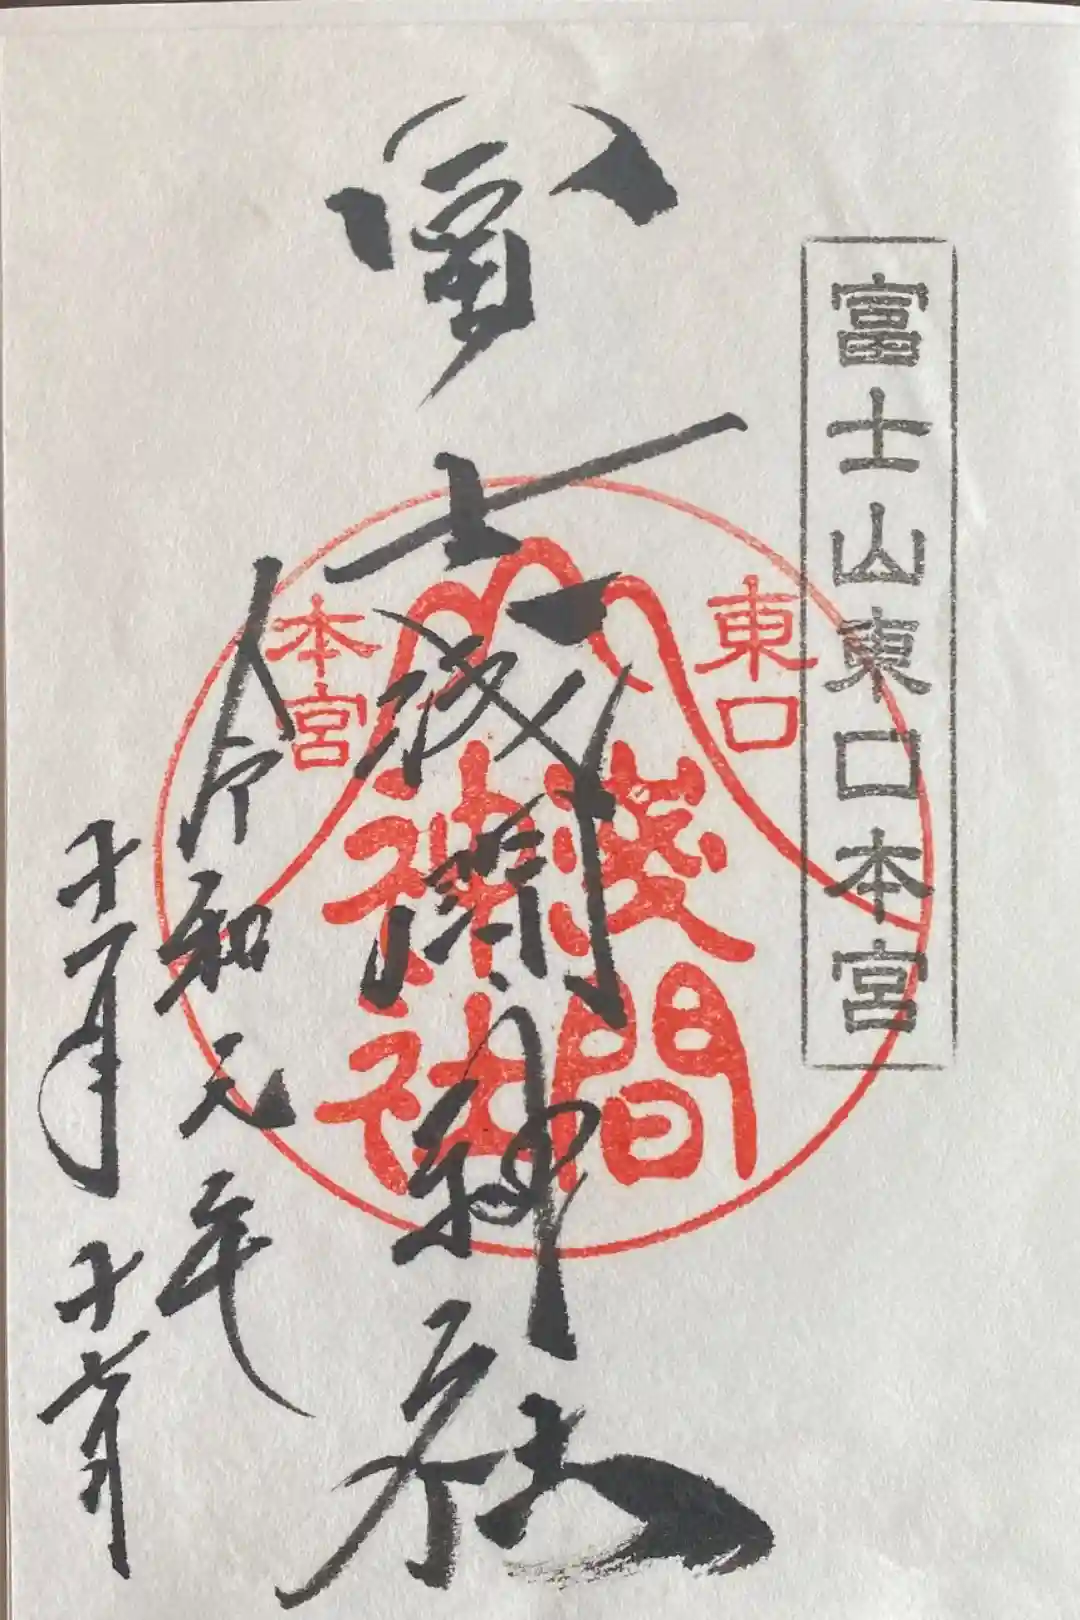 富士山東口本宮
冨士浅間神社
東口
本宮
浅間
神社
令和元年
十一月十七日